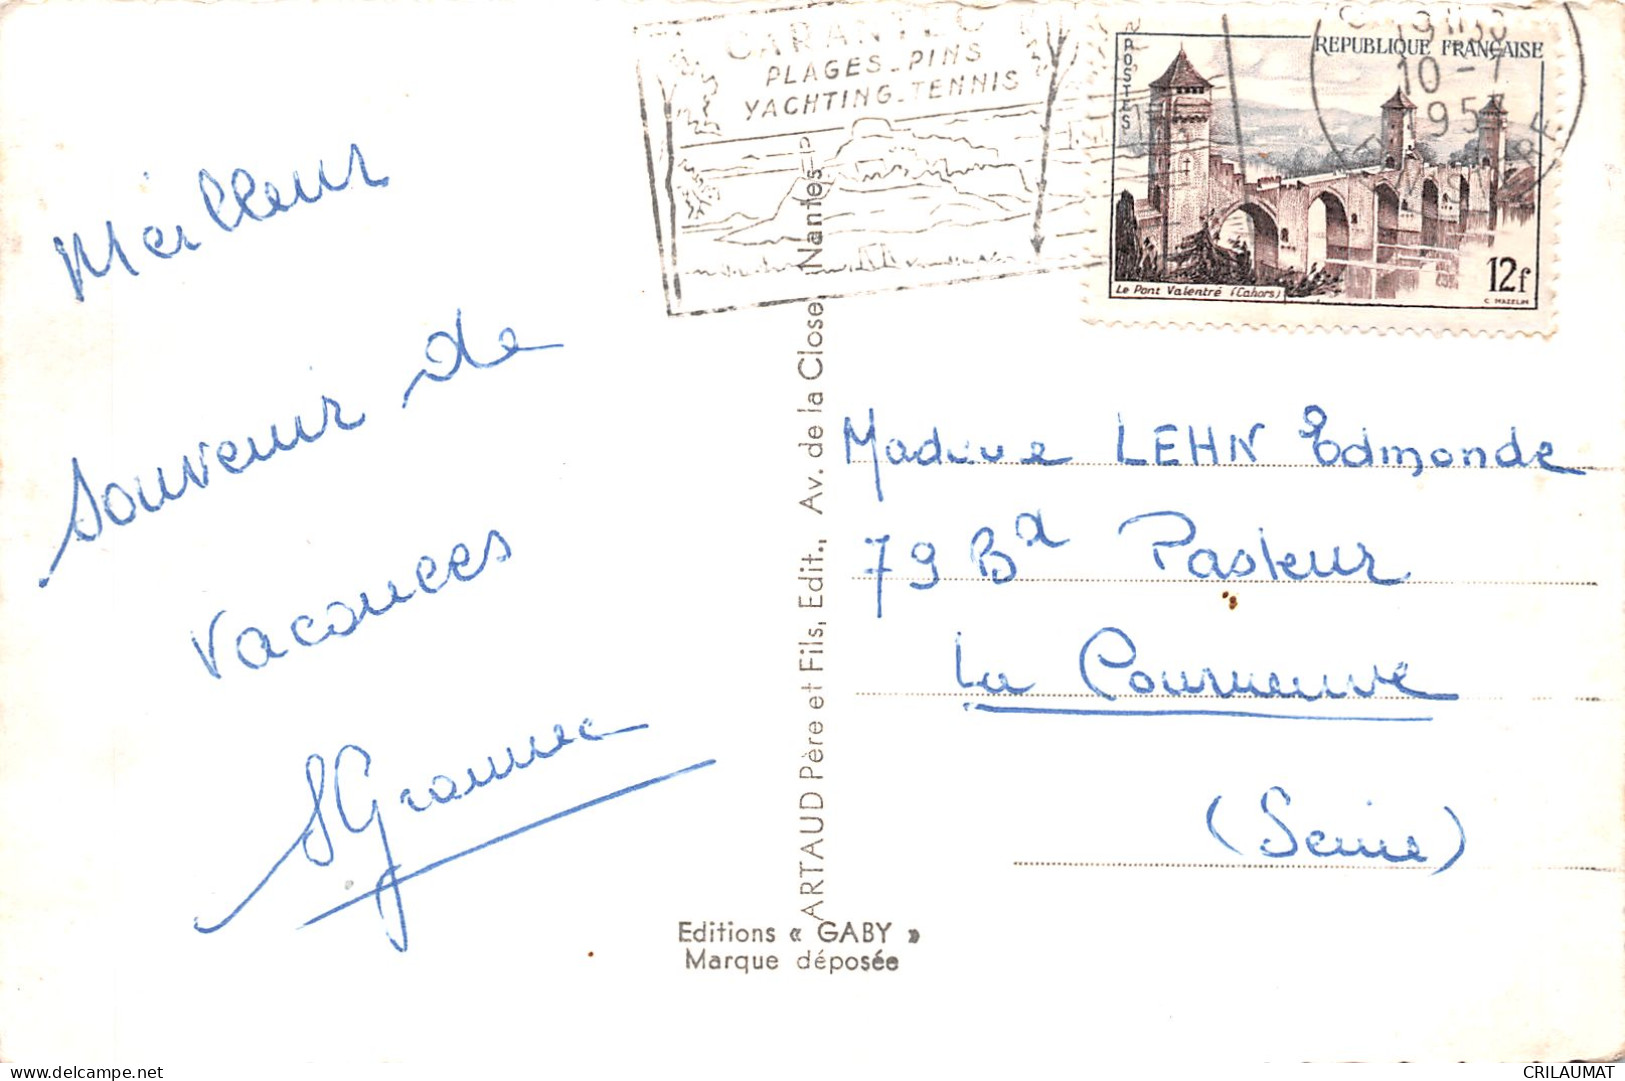 CARANTEC
PLAGES_PINS
YACHTING_TENNIS
POSTES
REPUBLIQUE FRANÇAISE
10 - 7
1957
FINISTERE
Le Pont Valentré (Cahors)
12f
C. MAZELIN
Meilleur
Souvenir de
vacances
Madame LEHN Edmonde
79 Bd Pasteur
La Courneuve
(Seine)
ARTAUD Père et Fils, Edit., Av. de la Close Nantes
Editions « GABY »
Marque déposée
CRILAUMAT